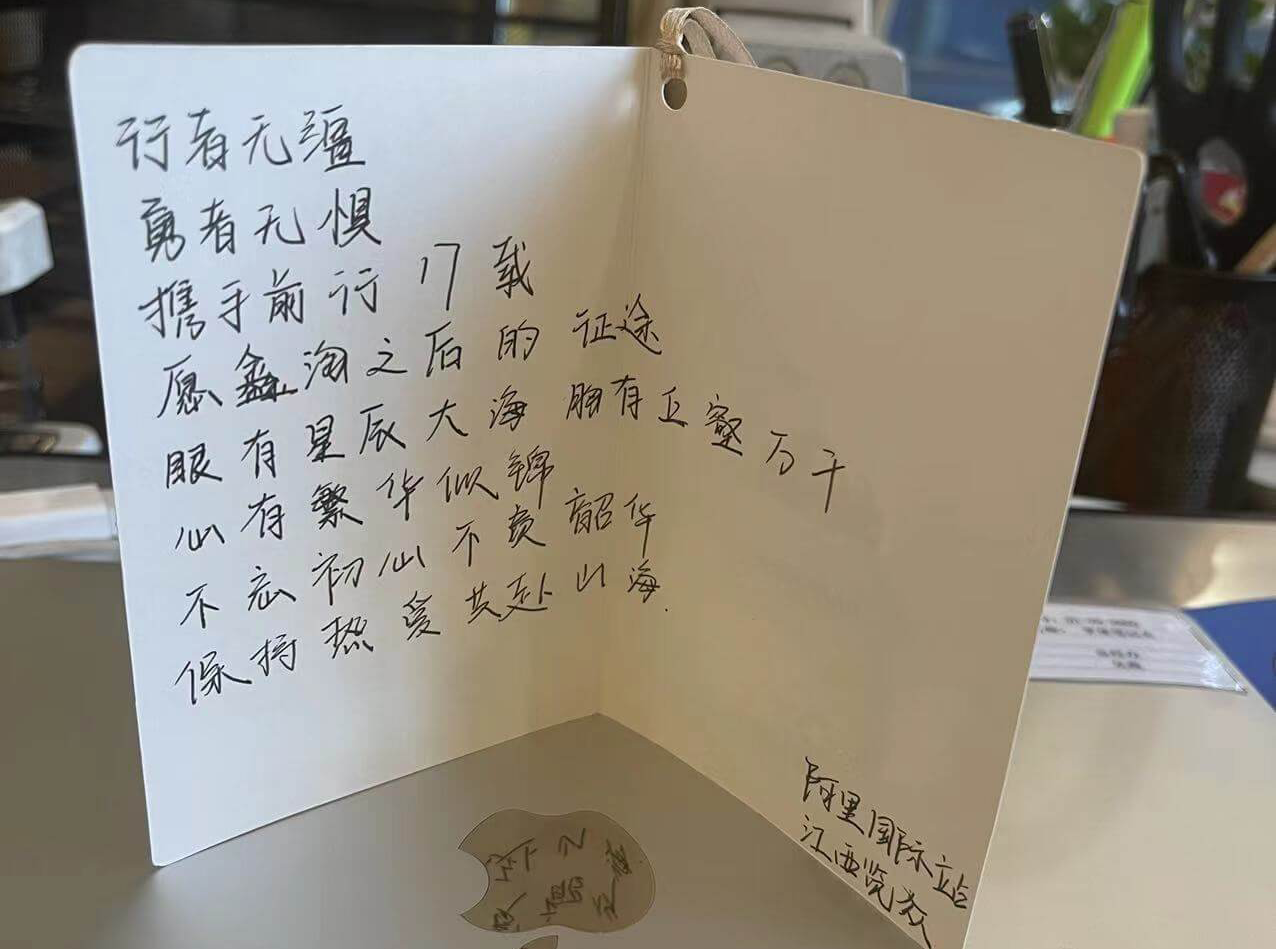 行者无疆
勇者无惧
携手前行 17 载
愿鑫淘之后的 征途
眼有星辰大海 胸有丘壑万千
心有繁华似锦
不忘初心不负韶华
保持热爱共赴山海.
阿里国际站
江西